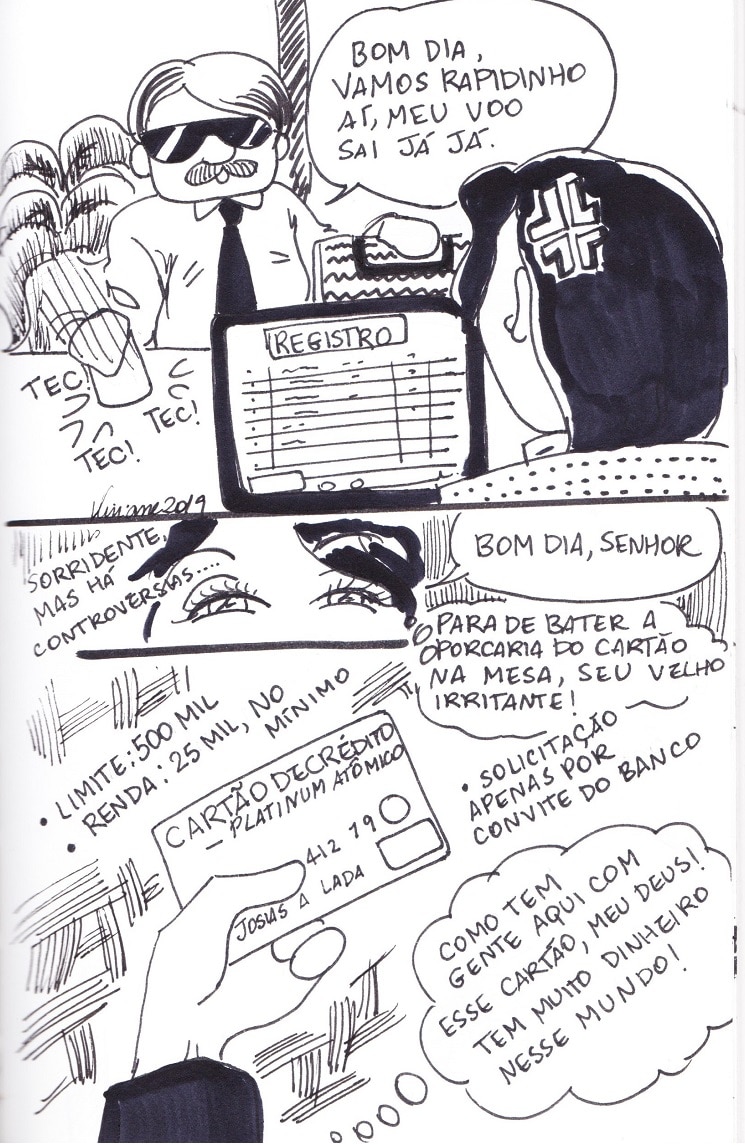 BOM DIA,
VAMOS RAPIDINHO
AÍ, MEU VOO
SAI JÁ JÁ.
REGISTRO
TEC!
TEC!
TEC!
Viviane 2019
SORRIDENTE,
MAS HÁ
CONTROVÉRSIAS....
BOM DIA, SENHOR
PARA DE BATER A
PORCARIA DO CARTÃO
NA MESA, SEU VELHO
IRRITANTE!
• LIMITE: 500 MIL
• RENDA: 25 MIL, NO
MÍNIMO
CARTÃO DE CRÉDITO
– PLATINUM ATÔMICO
412 79
JOSIAS A LADA
• SOLICITAÇÃO
APENAS POR
CONVITE DO BANCO
COMO TEM
GENTE AQUI COM
ESSE CARTÃO, MEU DEUS!
TEM MUITO DINHEIRO
NESSE MUNDO!